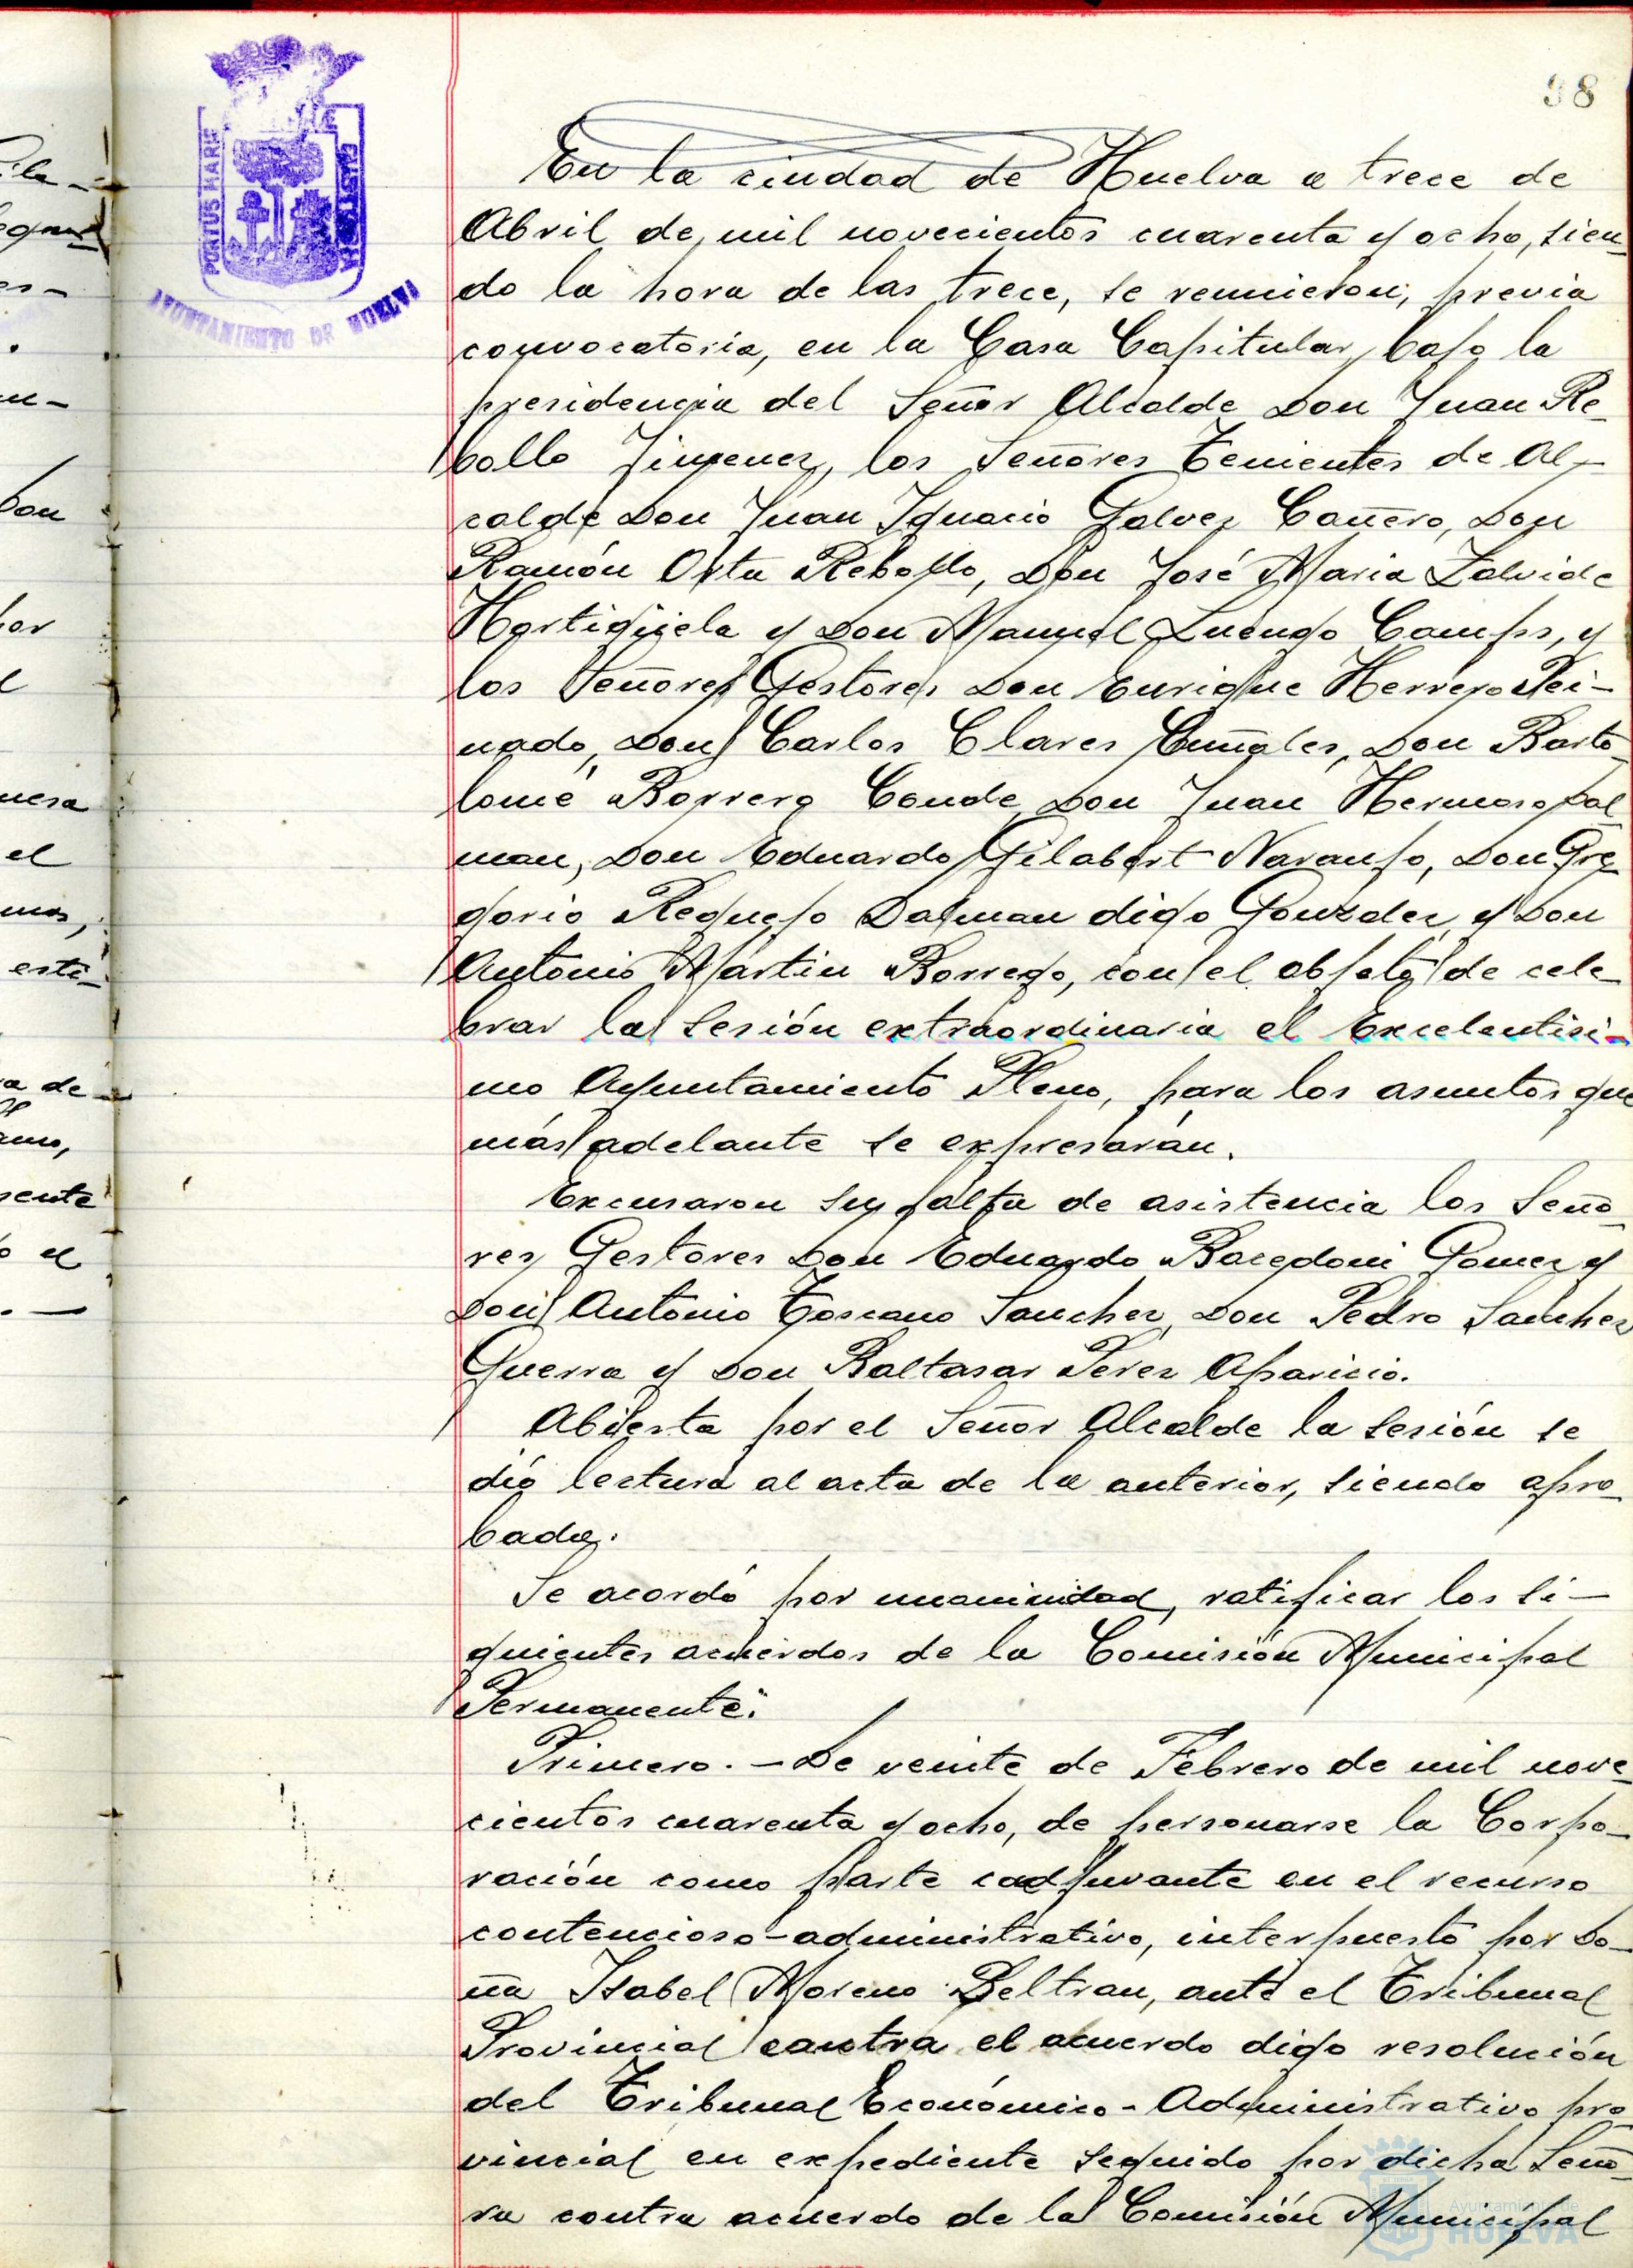 98
PORTUS MARIS
AYUNTAMIENTO DE HUELVA
En la ciudad de Huelva a trece de
Abril de mil novecientos cuarenta y ocho, sien-
do la hora de las trece, se reunieron, previa
convocatoria, en la Casa Capitular, bajo la
presidencia del Señor Alcalde Don Juan Re-
bollo Jimenez, los Señores Tenientes de Al-
calde Don Juan Ignacio Galvez Cañero, Don
Ramón Orta Rebollo, Don José Maria Zalvide
Hortigüela y Don Manuel Luengo Camps, y
los Señores Gestores Don Enrique Herrero Pei-
nado, Don Carlos Clares Don Barto-
lomé Borrero Conde, Don Juan Hermoso Dal
man, Don Eduardo Gilabert Naranjo, Don Gre
gorio Requejo Dalman digo Gonzalez, y Don
Antonio Martin Borrego, con el objeto de cele-
brar la sesión extraordinaria el Excelentisi-
mo Ayuntamiento Pleno, para los asuntos que
más adelante se expresarán.
Excusaron su falta de asistencia los Seño-
res Gestores Don Eduardo Gomez y
Don Antonio Toscano Sanchez, Don Pedro Sanchez
Guerra y Don Baltasar Perez Aparicio.
Abierta por el Señor Alcalde la sesión se
dió lectura al acta de la anterior, siendo apro-
bada.
Se acordó por unanimidad, ratificar los si-
guientes acuerdos de la Comisión Municipal
Permanente:
Primero. - De veinte de Febrero de mil nove-
cientos cuarenta y ocho, de personarse la Corpo-
ración como parte coadjuvante en el recurso
contencioso-administrativo, interpuesto por Do-
ña Isabel Moreno Beltran, ante el Tribunal
Provincial contra el acuerdo digo resolución
del Tribunal Económico-Administrativo pro-
vincial en expediente seguido por dicha Seño-
ra contra acuerdo de la Comisión Municipal
Ayuntamiento de
HUELVA